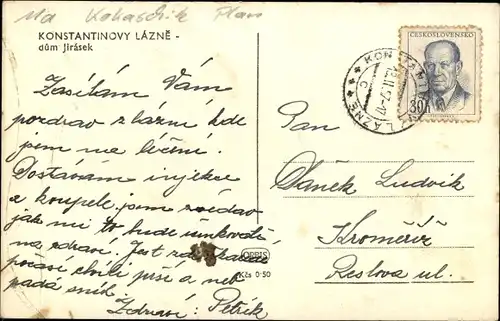 Na Kokaschik Plan
KONSTANTINOVY LÁZNĚ -
dům Jirásek
ČESKOSLOVENSKO
KONSTANT LÁZNĚ
30h
Zasílám Vám
pozdrav z lázní kde
jsem na léčení.
Dostávám injekce
a koupele, jsem zvědav
jak mi to bude účinkovati
na zdraví. Jest zde
počasí chvíli prší a neb
padá sníh
Zdraví: Petřík
Pan
Vaněk Ludvík
Kroměříž
Reslova ul.
ORBIS
Kčs 0·50